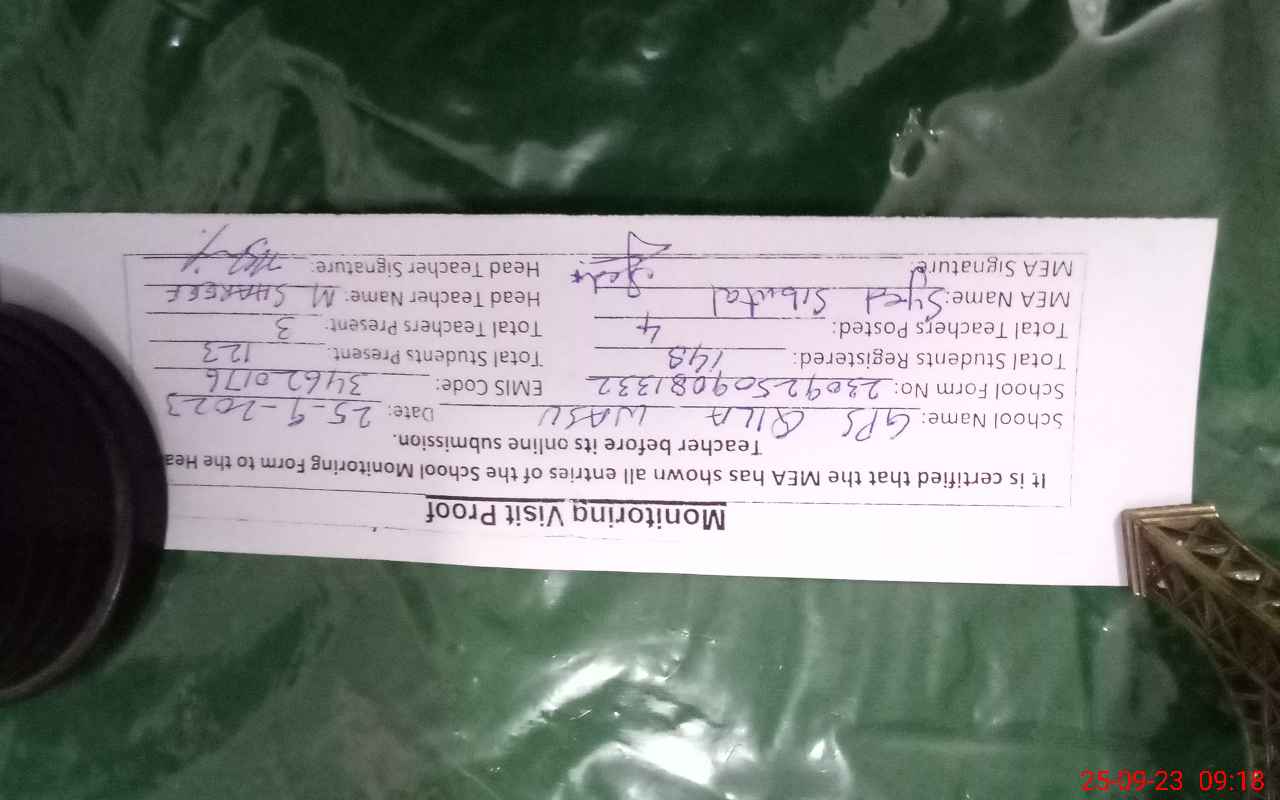 Monitoring Visit Proof
It is certified that the MEA has shown all entries of the School Monitoring Form to the Hea
Teacher before its online submission.
School Name: GPS QILA WASU Date: 25-9-2023
School Form No: 2309250909081332 EMIS Code: 34620176
Total Students Registered: 148 Total Students Present: 123
Total Teachers Posted: 4 Total Teachers Present: 3
MEA Name: Syed Sibutal Head Teacher Name: M SHAREEF
MEA Signature: Head Teacher Signature:
25-09-23 09:18